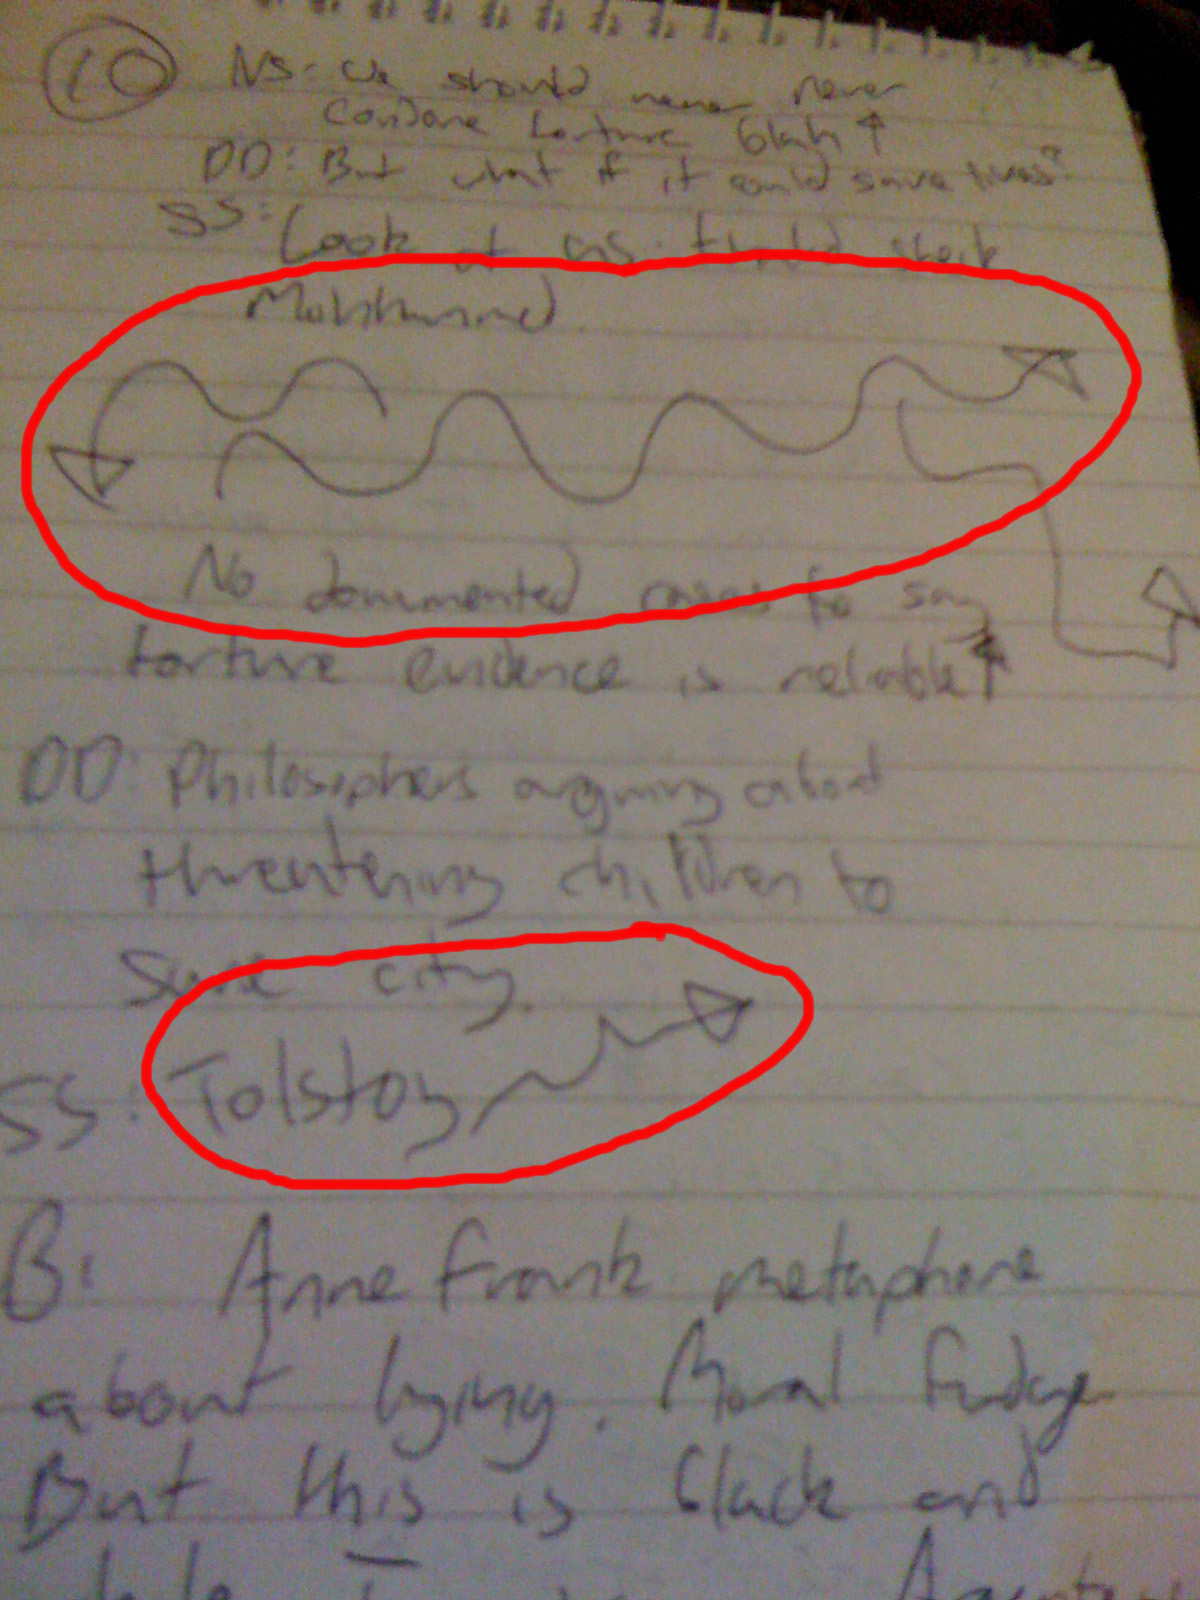 10
NS: We should never never
condone torture blah ↑
DD: But what if it could save lives?
SS: Look at this
No documented cases to say
torture evidence is reliable ↑
DD: Philosophers arguing about
threatening children to
save city.
SS: Tolstoy
B: Anne Frank metaphore
about lying. Moral fudge
But this is black and